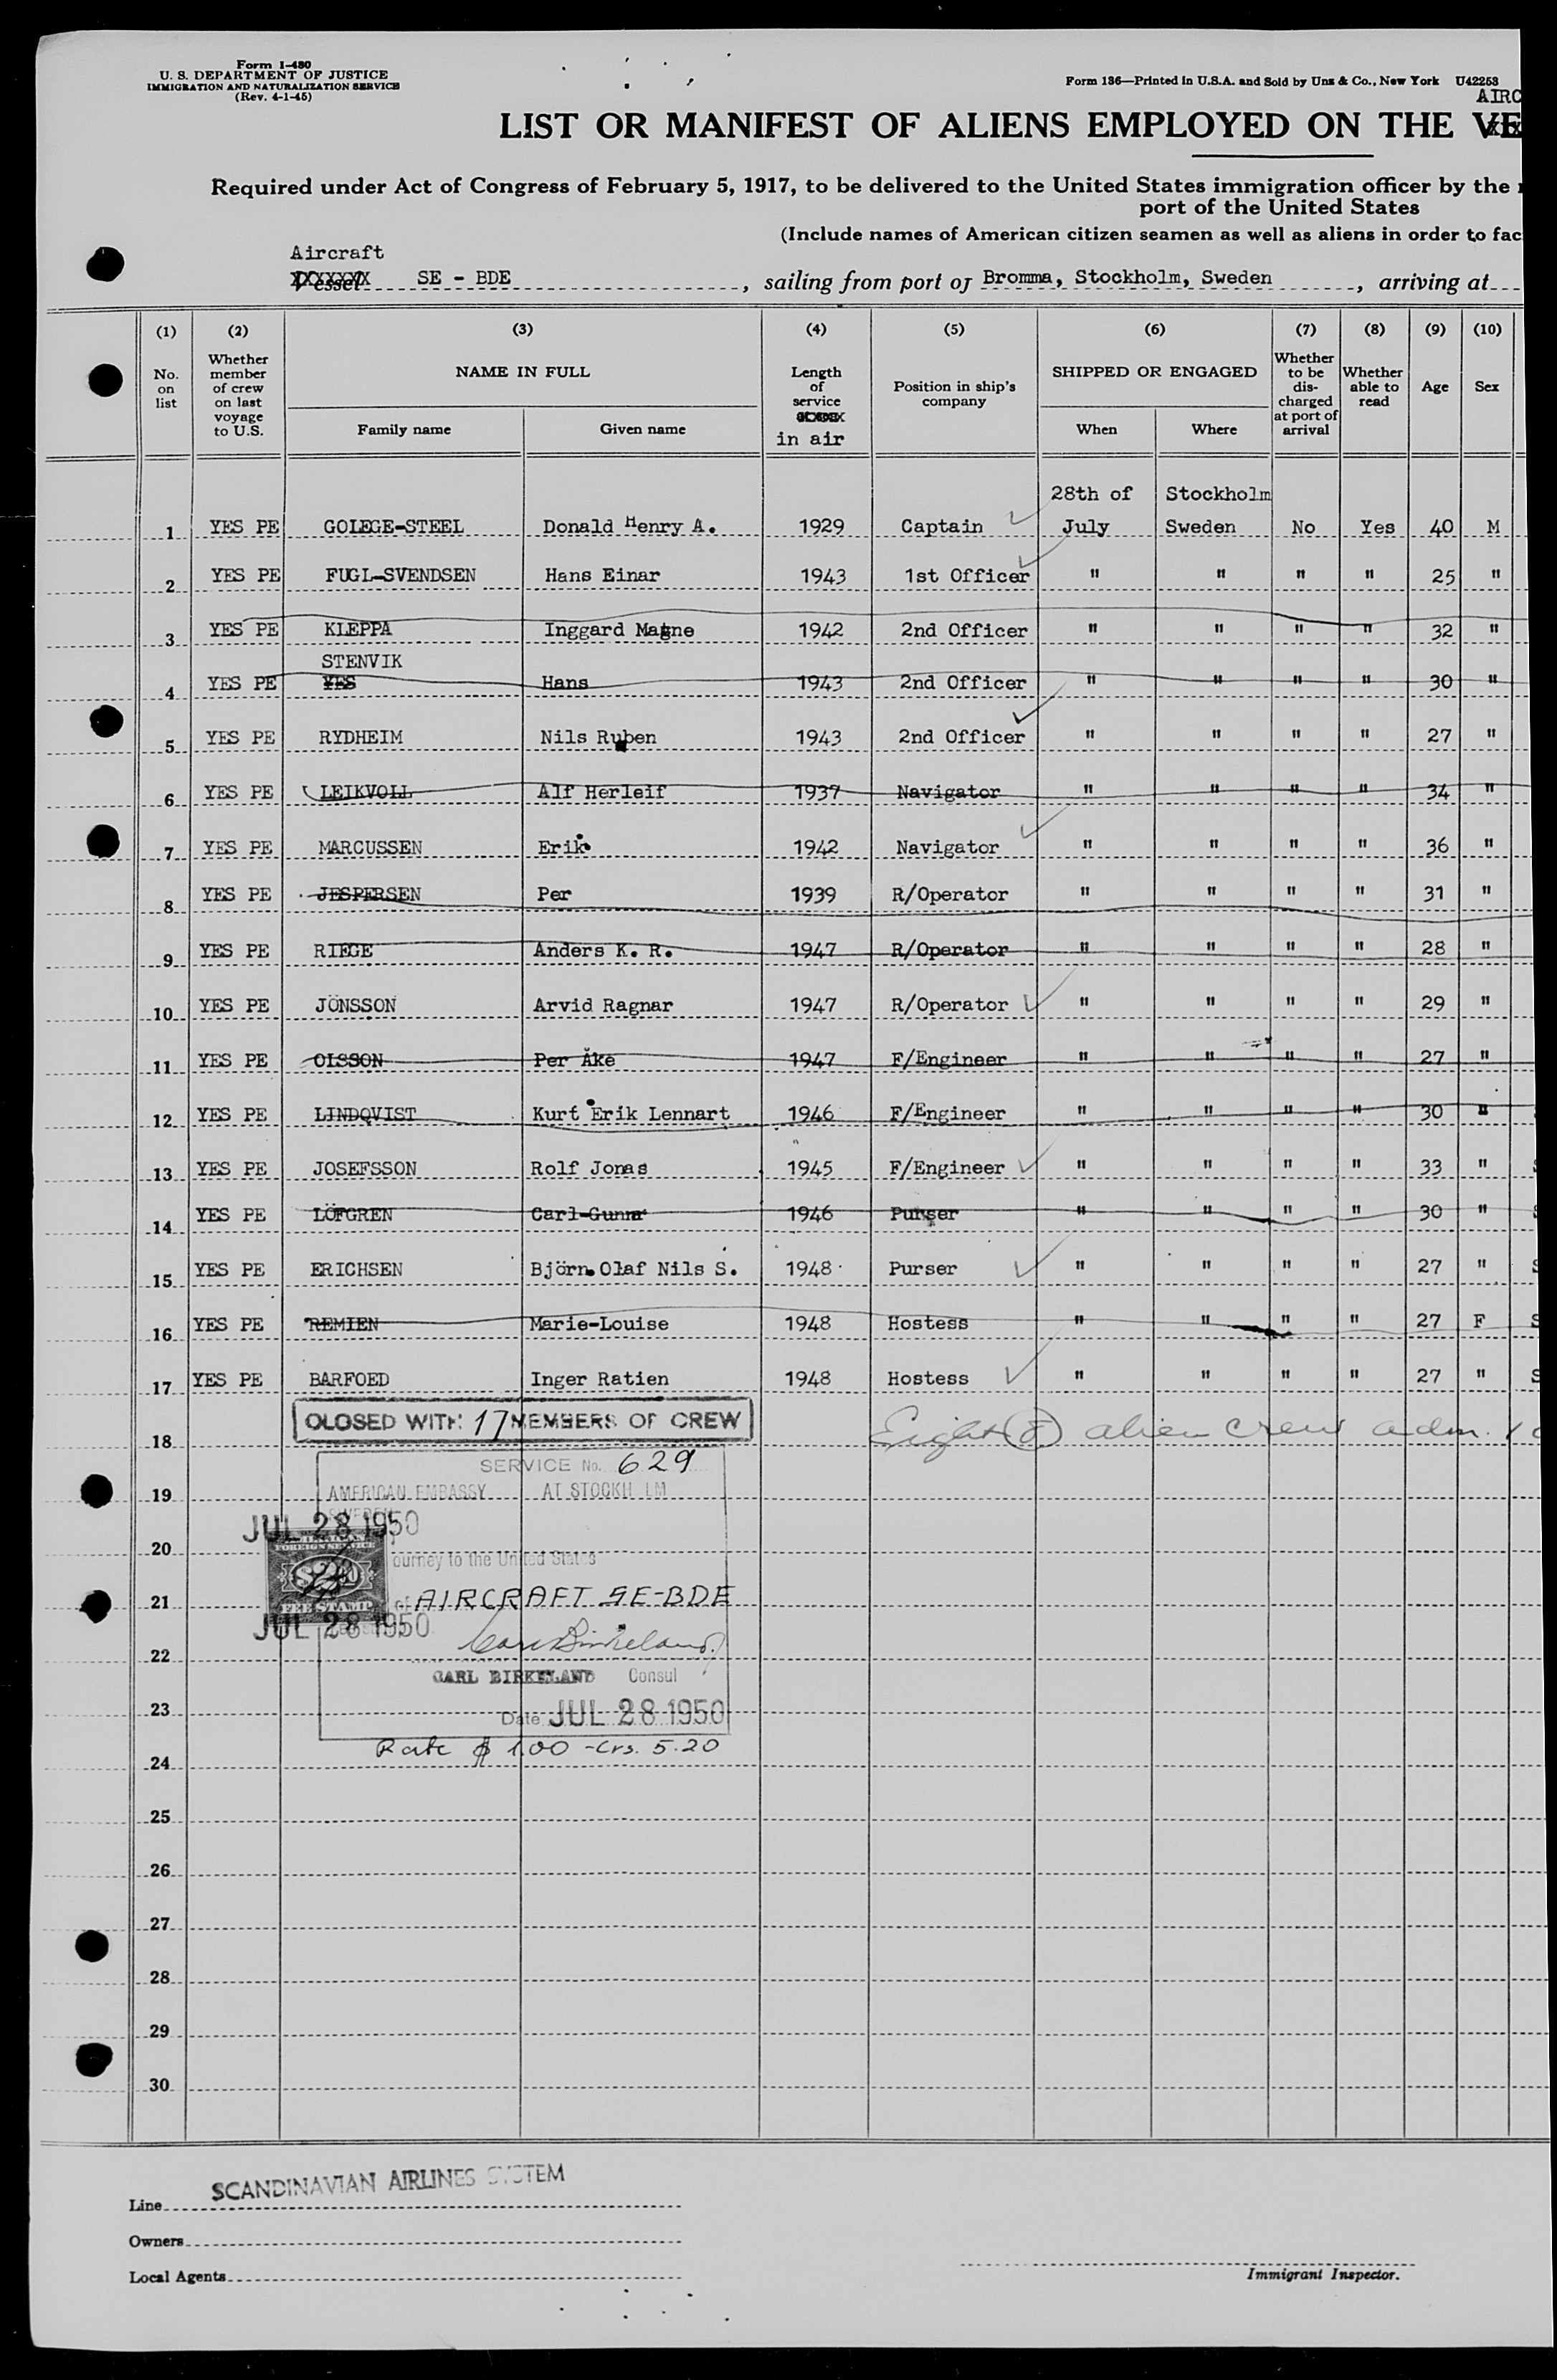 Form 1-480
U. S. DEPARTMENT OF JUSTICE
IMMIGRATION AND NATURALIZATION SERVICE
(Rev. 4-1-45)
Form 136—Printed in U.S.A. and Sold by Unz & Co., New York U42253
AIRC
LIST OR MANIFEST OF ALIENS EMPLOYED ON THE VE
Required under Act of Congress of February 5, 1917, to be delivered to the United States immigration officer by the
port of the United States
(Include names of American citizen seamen as well as aliens in order to fac
Aircraft
Vessel SE - BDE, sailing from port of Bromma, Stockholm, Sweden, arriving at
(1) (2) (3) (4) (5) (6) (7) (8) (9) (10)
No. on list
Whether member of crew on last voyage to U.S.
NAME IN FULL
Family name Given name
Length of service in air
Position in ship's company
SHIPPED OR ENGAGED
When Where
Whether to be discharged at port of arrival
Whether able to read
Age
Sex
28th of Stockholm
1 YES PE GOLEGE-STEEL Donald Henry A. 1929 Captain July Sweden No Yes 40 M
2 YES PE FUGL-SVENDSEN Hans Einar 1943 1st Officer " " " " 25 "
3 YES PE KLEPPA Inggard Magne 1942 2nd Officer " " " " 32 "
STENVIK
4 YES PE YES Hans 1943 2nd Officer " " " " 30 "
5 YES PE RYDHEIM Nils Ruben 1943 2nd Officer " " " " 27 "
6 YES PE LEIKVOLL Alf Herleif 1937 Navigator " " " " 34 "
7 YES PE MARCUSSEN Erik 1942 Navigator " " " " 36 "
8 YES PE JESPERSEN Per 1939 R/Operator " " " " 31 "
9 YES PE RIEGE Anders K. R. 1947 R/Operator " " " " 28 "
10 YES PE JÖNSSON Arvid Ragnar 1947 R/Operator " " " " 29 "
11 YES PE OLSSON Per Åke 1947 F/Engineer " " " " 27 "
12 YES PE LINDQVIST Kurt Erik Lennart 1946 F/Engineer " " " " 30 "
13 YES PE JOSEFSSON Rolf Jonas 1945 F/Engineer " " " " 33 "
14 YES PE LÖFGREN Carl-Gunnar 1946 Purser " " " " 30 "
15 YES PE ERICHSEN Björn Olaf Nils S. 1948 Purser " " " " 27 "
16 YES PE REMIEN Marie-Louise 1948 Hostess " " " " 27 F S
17 YES PE BARFOED Inger Ratien 1948 Hostess " " " " 27 " S
CLOSED WITH 17 MEMBERS OF CREW
Eight (8) alien crew adm.
18
SERVICE No. 629
19
AMERICAN EMBASSY AT STOCKH LM
SWEDEN
JUL 28 1950
20
FOREIGN SERVICE
ourney to the United States
$2.00
21
of AIRCRAFT SE-BDE
FEE STAMP
JUL 28 1950
Carl Birkeland
22
CARL BIRKELAND Consul
23
Date JUL 28 1950
Rate $ 1.00 - Crs. 5.20
24
25
26
27
28
29
30
Line SCANDINAVIAN AIRLINES SYSTEM
Owners
Local Agents
Immigrant Inspector.